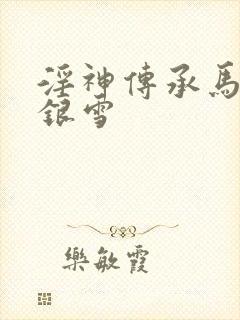 淫神傳承馬
銀雪
樂敏霞